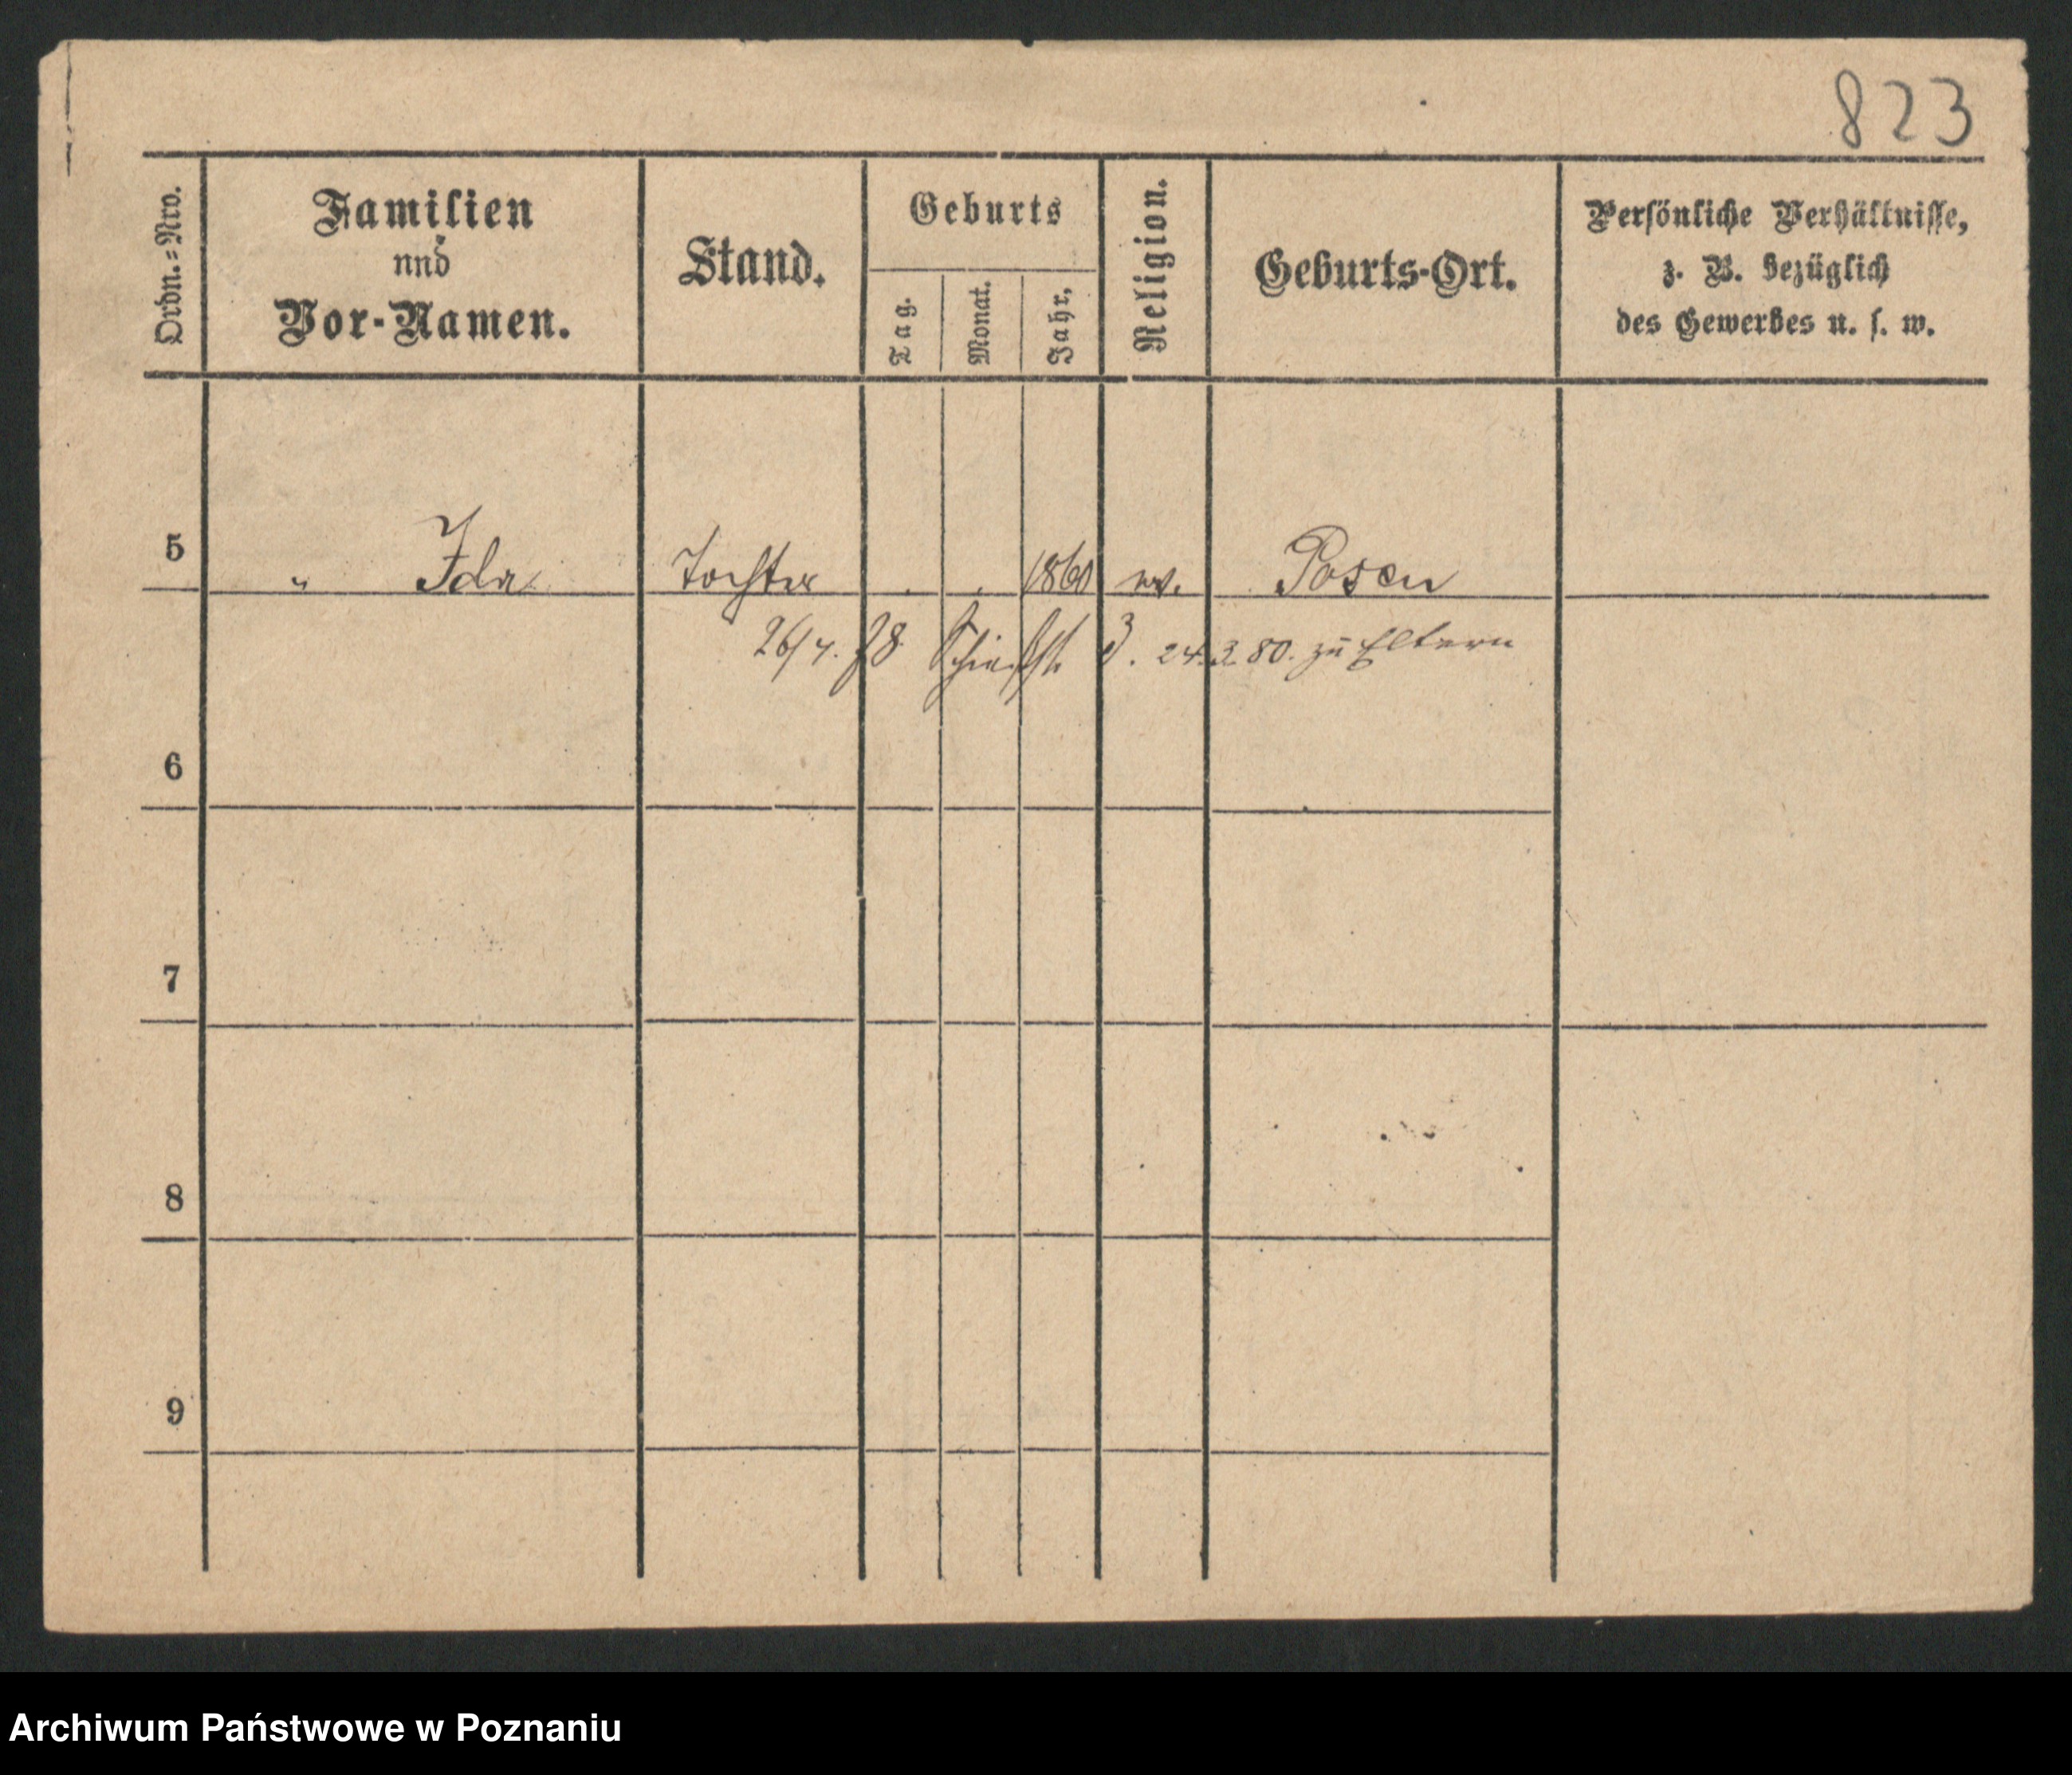 823
Ordn.=Nro.
Familien
und
Vor-Namen.
Stand.
Geburts
Tag.
Monat.
Jahr,
Religion.
Geburts-Ort.
Persönliche Verhältnisse,
z. B. bezüglich
des Gewerbes u. s. w.
5 " Ida Tochter . . 1860 Posen
26/4. 78. 3. 24.3.80. zu Eltern
6
7
8
9
Archiwum Państwowe w Poznaniu